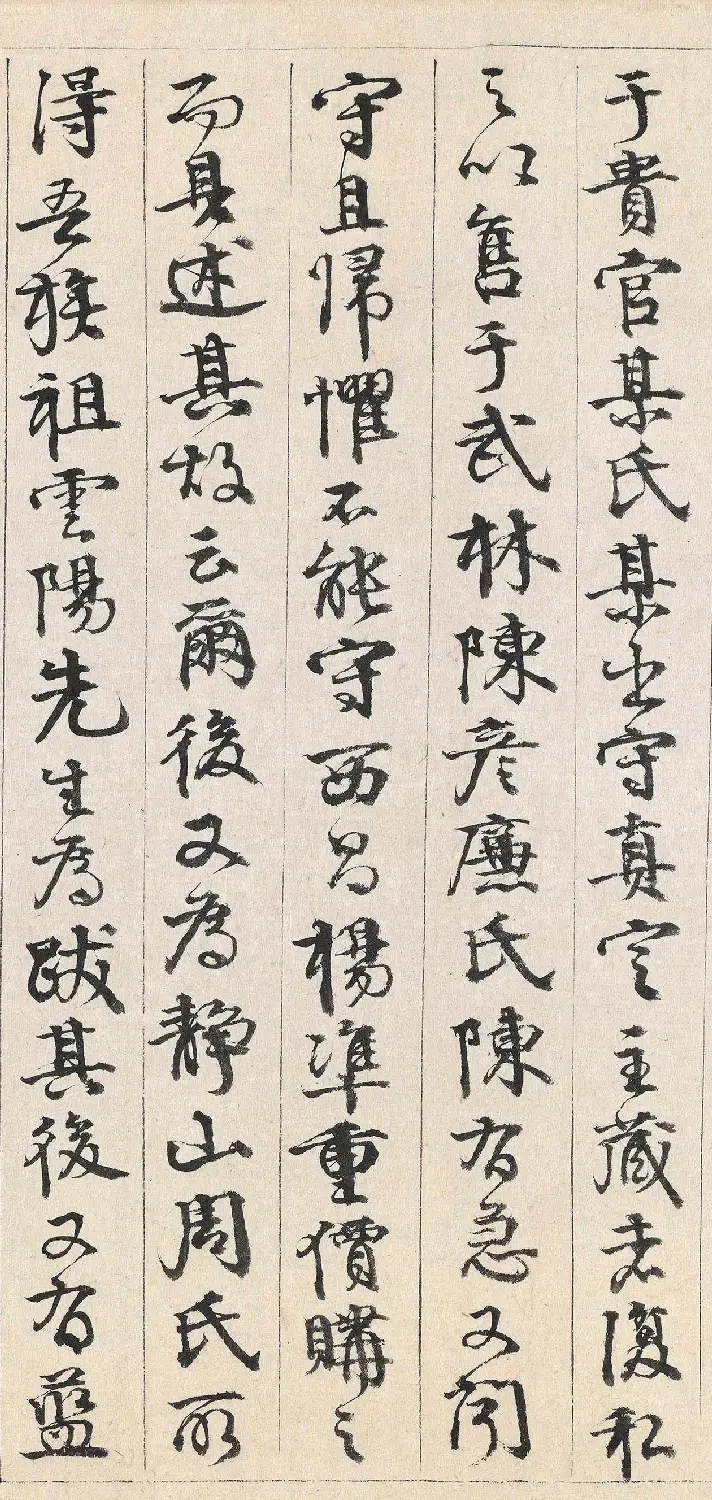 于貴官某氏某出守真定主藏者復私
之以售于武林陳彦廉氏陳有急又聞
守且歸懼不能守西昌楊準重價購之
而具述其故云爾後又為靜山周氏所
得吾族祖雲陽先生為跋其後又有藍